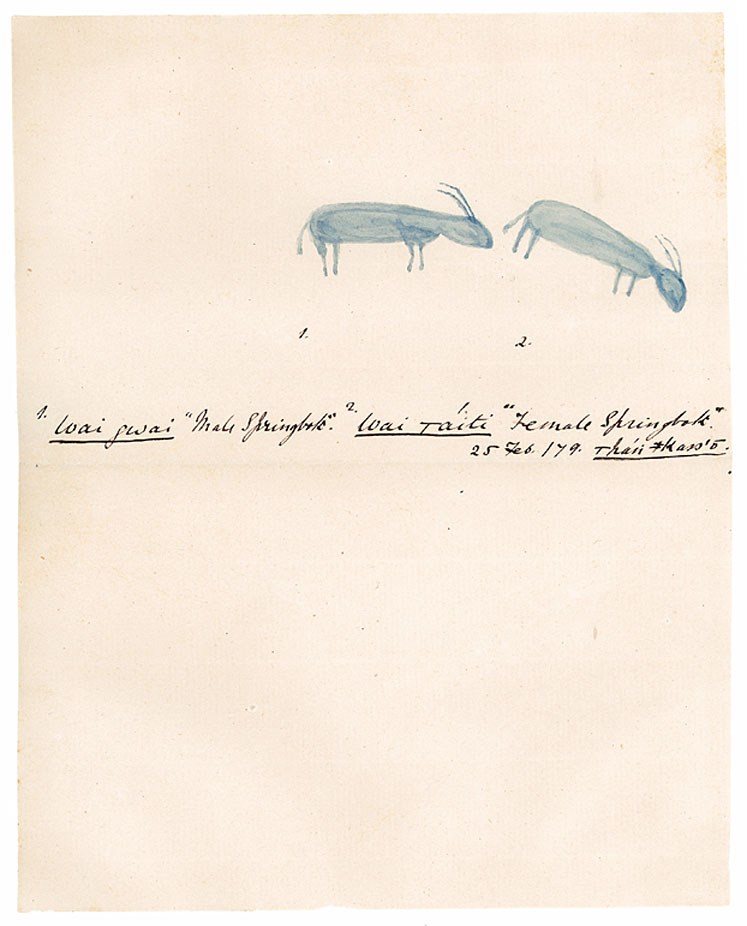 1. 2.
1. Wai gwai "Male Springbok". 2. Wai Ꞇáiti "Female Springbok".
25 Feb. /79. ǂkass'ō.